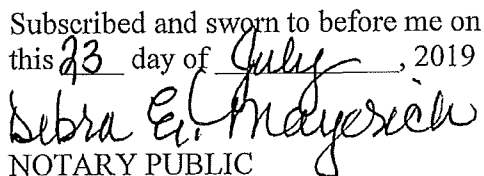 Subscribed and sworn to before me on
this 23 day of July, 2019
Debra G. Mayerich
NOTARY PUBLIC